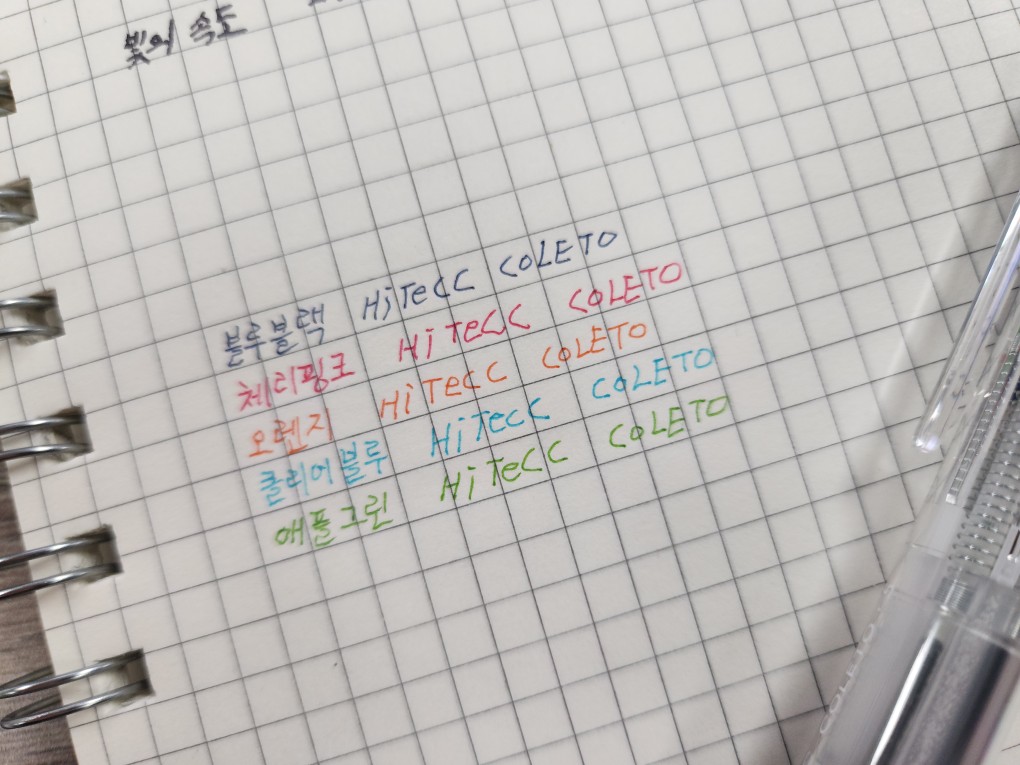 빛의 속도
블루블랙 HiTecC COLETO
체리핑크 HiTecC COLETO
오렌지 HiTecC COLETO
클리어블루 HiTecC COLETO
애플그린 HiTecC COLETO